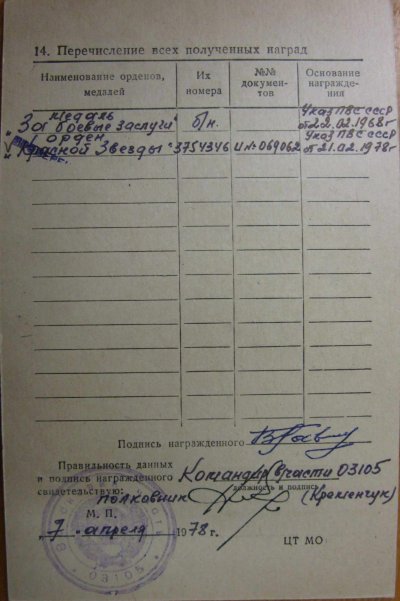 14. Перечисление всех полученных наград
Наименование орденов, медалей
Их номера
№№ документов
Основание награждения
Медаль
"За боевые заслуги"
б/н.
Указ ПВС СССР
от 22.02.1968г
орден
"Красной Звезды"
3754346
И № 069062
Указ ПВС СССР
от 21.02.1978г
Подпись награжденного
Правильность данных
и подпись награжденного
свидетельствую:
Командир в/части 03105
должность и подпись
полковник
(Кременчук)
М. П.
"7" апреля 1978 г.
ЦТ МО
03105